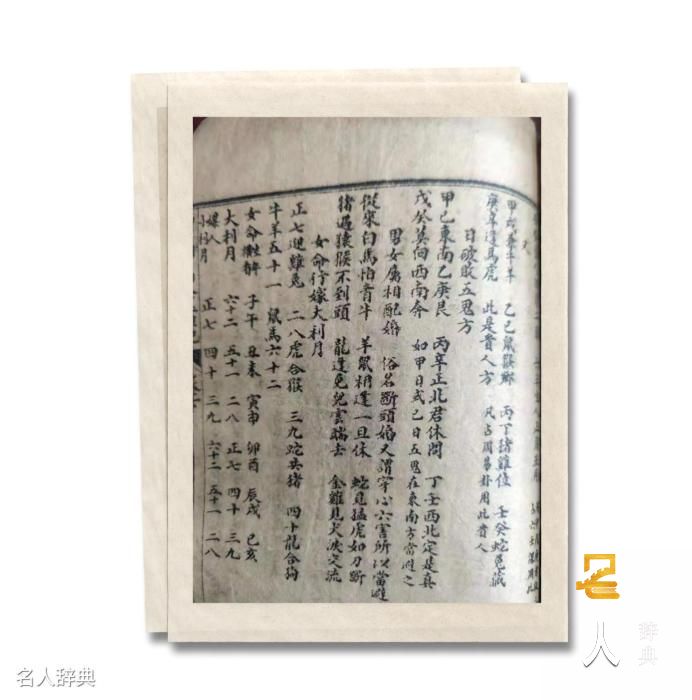 甲戊兼牛羊　乙己鼠猴鄉　丙丁猪雞位　壬癸蛇兎藏
庚辛逢馬虎　此是貴人方　凡占周易卦用此貴人
日破敗五鬼方
甲己東南乙庚艮　丙辛正北君休問　丁壬西北定是真
戊癸莫向西南奔　如甲日或己日五鬼在東南方當避之
男女屬相配婚　俗名斷頭婚又謂穿心六害所以當避
從來白馬怕青牛　羊鼠相逢一旦休　蛇見猛虎如刀斷
猪遇猿猴不到頭　龍逢兎兒雲端去　金雞見犬淚交流
女命行嫁大利月
正七迎雞兎　二八虎合猴　三九蛇共猪　四十龍合狗
牛羊五十一　鼠馬六十二
女命 子午　丑未　寅申　卯酉　辰戌　巳亥
大利月　六十二　五十一　二八　正七　四十　三九
媒人　正七　四十　三九　六十二　五十一　二八
小利月
名人辞典
名
人
辞典